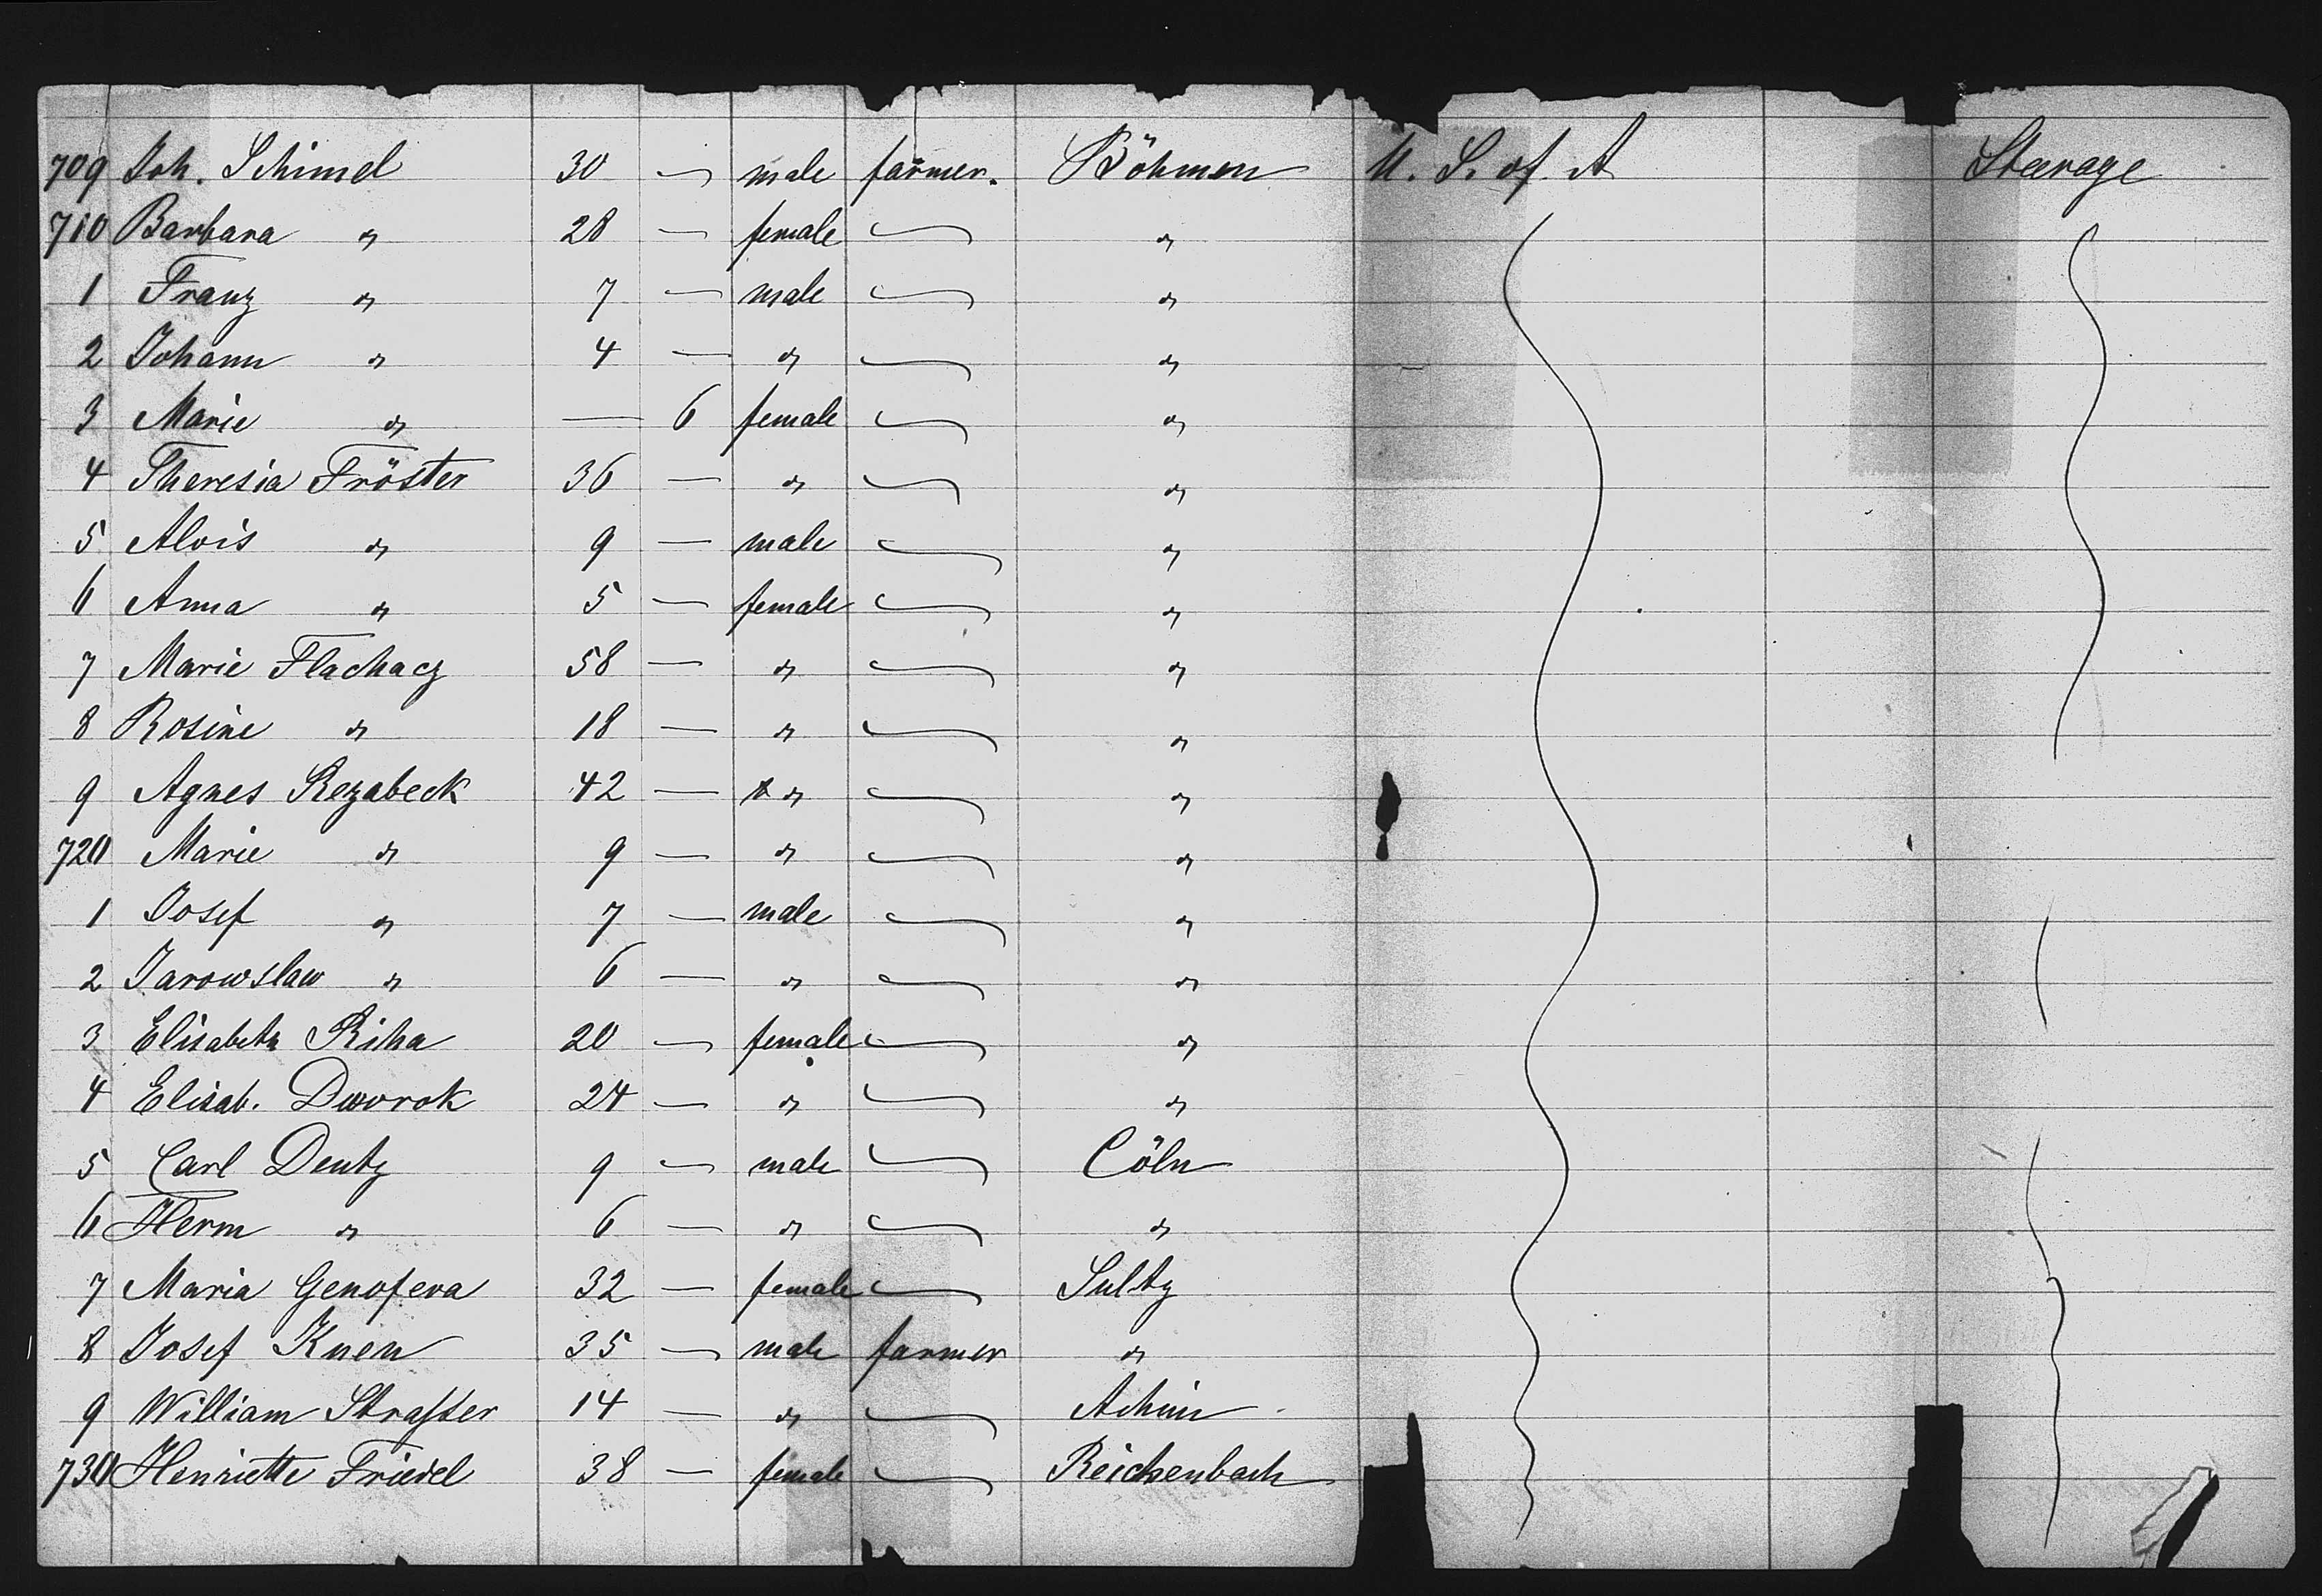 709 Joh. Schimel 30 — male farmer. Böhmen U. S. of A Steerage
710 Barbara " 28 — female — "
1 Franz " 7 — male — "
2 Johann " 4 — " — "
3 Marie " — 6 female — "
4 Theresia Fröster 36 — " — "
5 Alois " 9 — male — "
6 Anna " 5 — female — "
7 Marie Flachacz 58 — " — "
8 Rosine " 18 — " — "
9 Agnes Rezabeck 42 — " — "
720 Marie " 9 — " — "
1 Josef " 7 — male — "
2 Jarowslaw " 6 — " — "
3 Elisabeth Riha 20 — female — "
4 Elisab. Dworok 24 — " — "
5 Carl Deutz 9 — male — Cöln
6 Herm " 6 — " — "
7 Maria Genofeva 32 — female — Sultz
8 Josef Knen 35 — male farmer "
9 William Straſser 14 — " — Achim
730 Henriette Friedel 38 — female — Reichenbach